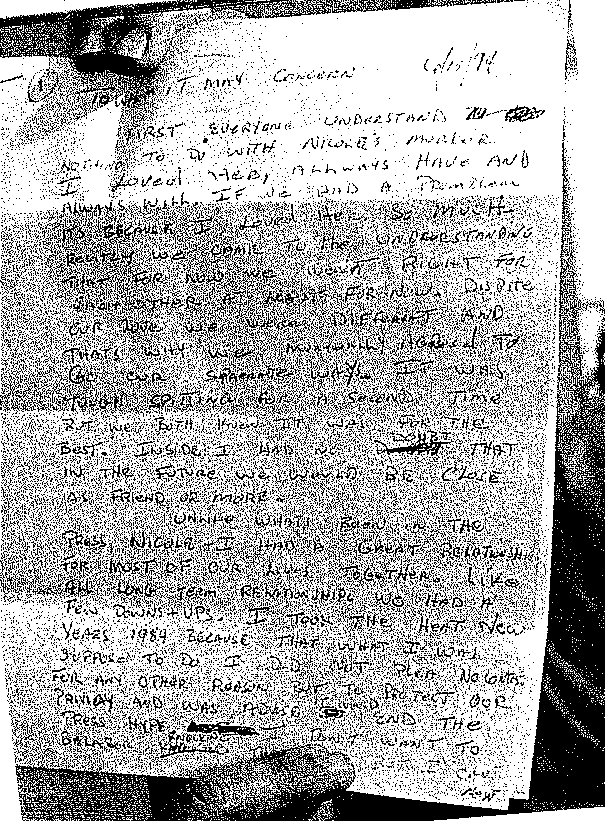 ① TO WHOM IT MAY CONCERN 6/15/94
FIRST EVERYONE UNDERSTAND
NOTHING TO DO WITH NICOLE'S MURDER
I LOVED HER, ALLWAYS HAVE AND
ALWAYS WILL. IF WE HAD A PROMBLEM
IT'S BECAUSE I LOVED HER SO MUCH
RECITLY WE CAME TO THE UNDERSTANDING
THAT FOR NOW WE WERE'NT RIGHT FOR
EACHOTHER AT LEAST FOR NOW. DISPITE
OUR LOVE WE WERE DIFFERENT AND
THATS WHY WE MUTUALLY AGREED TO
GO OUR SPARATE WAYS. IT WAS
TOUGH SPITTING FOR A SECOND TIME
BUT WE BOTH KNEW IT WAS FOR THE
BEST. INSIDE I HAD NO DOUBT THAT
IN THE FUTURE WE WOULD BE CLOSE
AS FRIEND OR MORE.
UNLIKE WHATS BEEN IN THE
PRESS, NICOLE + I HAD A GREAT RELATIONSHIP
FOR MOST OF OUR LIVES TOGETHER. LIKE
ALL LONG TERM RELATIONSHIPS WE HAD A
FEW DOWNS + UPS. I TOOK THE HEAT NEW
YEARS 1989 BECAUSE THAT WHAT I WAS
SUPPOSE TO DO I DID NOT PLEA NO CONTEST
FOR ANY OTHER REASON BUT TO PROTECT OUR
PRIVACY AND WAS ADVISE END THE
PRESS HYPE
DON'T WANT TO